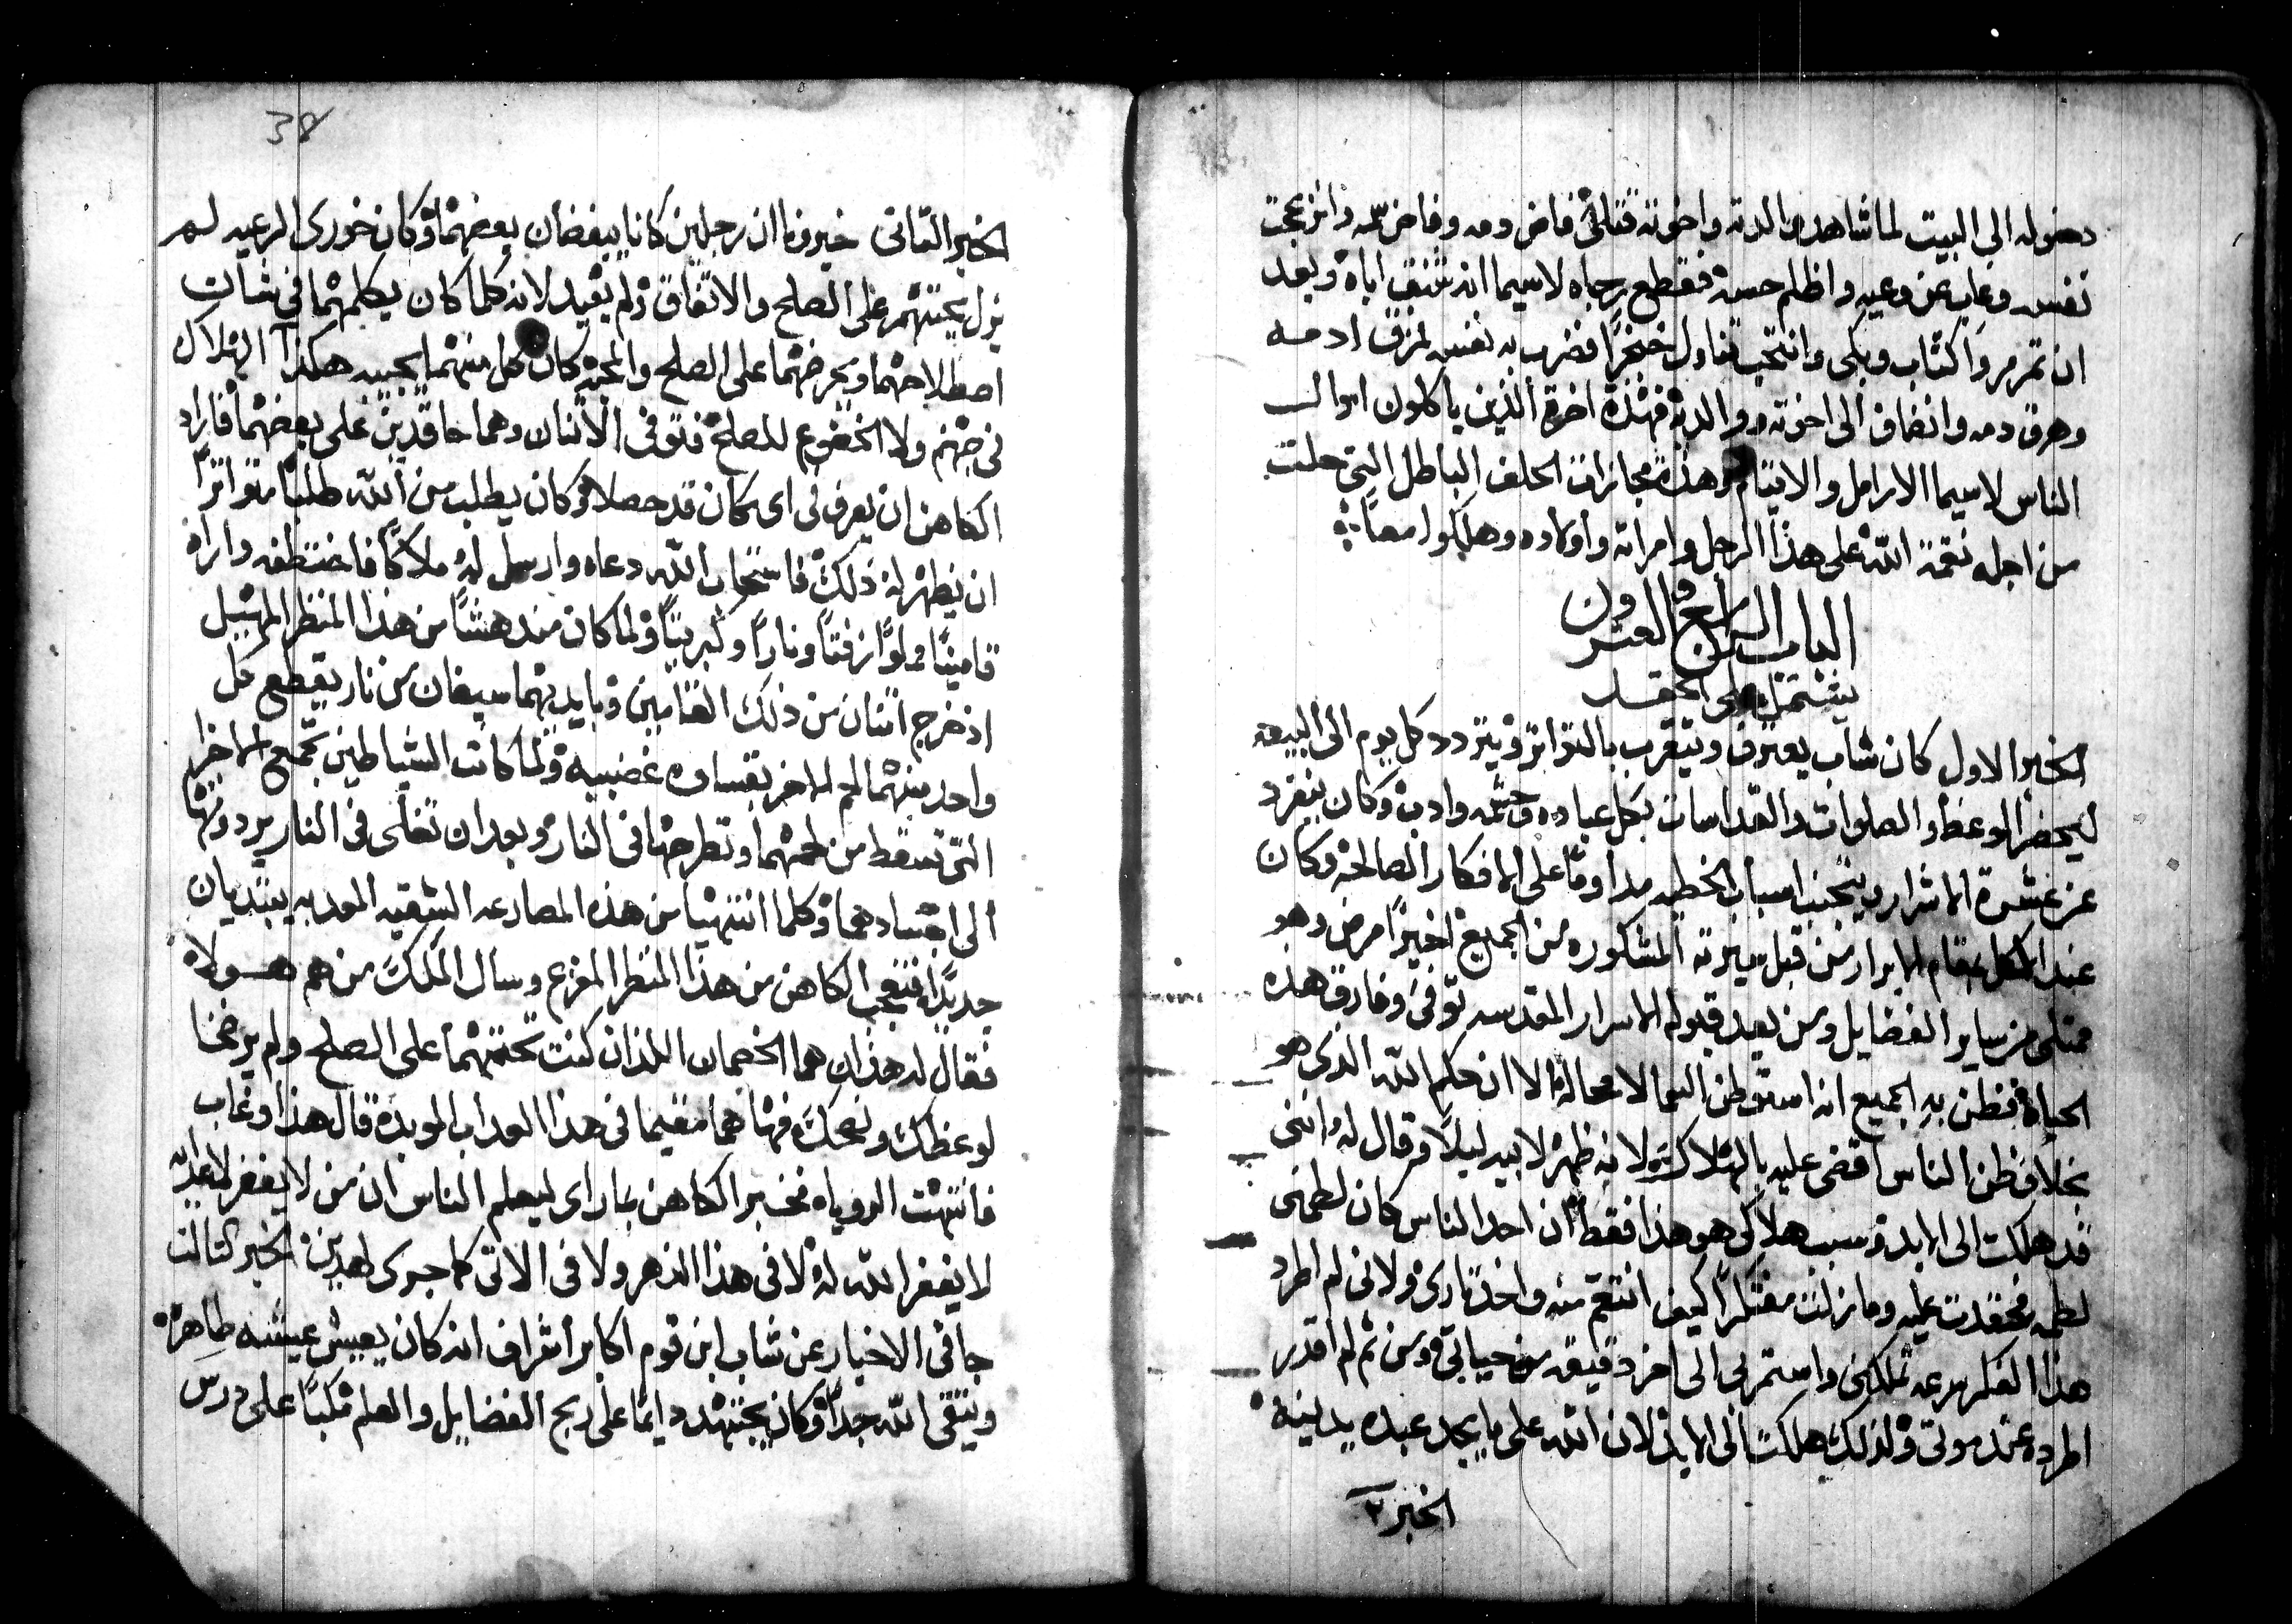 دخوله الى البيت لما شاهد والدته واخوته قتلى فاض دمه وفاض سمه وانزعجت
نفسه وغاب عن وعيه واظلم حسه فقطع رجاه لاسيما انه شنق اباه وبعد
ان تمرمر واكتاب وبكى وانتحب تناول خنجرًا فضرب به نفسه لمزق ادمه
وهرق دمه وانضاف الى اخوته ووالديه فهذه اخرة الذين ياكلون اموال
الناس لاسيما الارامل والايتام وهذه مجازاة الحلف الباطل التي حلت
من اجله نقمة الله على هذا الرجل وامراته واولاده وهلكوا معاً
الباب الرابع والعشرون
يشتمل على الحقد
الخبر الاول كان شاب يعترف ويتقرب بالتواتر ويتردد كل يوم الى البيعه
ليحضر الوعظ والصلوات والقداسات بكل عباده وحشمه وادب وكان ينفرد
عن عشرة الاشرار ويتجنب اسباب الخطيه مداومًا على الافكار الصالحة وكان
عند الكل بمقام الابرار من قبل سيرته المشكوره من الجميع اخيرًا مرض وهو
ممتلى من ساير الفضايل ومن بعد قبوله الاسرار المقدسه توفى وفارق هذه
الحياة فظن به الجميع انه استوطن السما لا محالة الا ان حكم الله الذي هو
بخلاف ظن الناس اقضى عليه بالهلاك لانه ظهر لابيه ليلاً وقال له انني
قد هلكت الى الابد وسبب هلاكي هو هذا فقط ان احد الناس كان لطمني
لطمه فحقدت عليه وما زلت مفتكرًا كيف انتقم منه واخذ تاري ولاني لم اطرد
هذا الفكر سرعه تملكني واستمر بي الى اخر دقيقه من حياتي ومن ثم لم اقدر
اطرده عند موتي ولذلك هلكت الى الابد لان الله على ما يجد عبده يدينه
الخبر ٢
38
الخبر التاني خبرونا ان رجلين كانا يبغضان بعضهما وكان خوري الرعيه لم
يزل يحتهم على الصلح والاتفاق ولم يفيد لانه كلما كان يكلمهما في شان
اصطلاحهما ويحرضهما على الصلح والمحبه كان كل منهما يجيبه هكذا الهلاك
في جهنم ولا الخضوع للصلح فتوفى الاثنان وهما حاقدين على بعضهما فاراد
الكاهن ان يعرف في اي مكان قد حصلا وكان يطلب من الله طلباً متواترًا
ان يظهر له ذلك فاستجاب الله دعاه وارسل له ملاكًا فاختطفه واراه
قامينًا مملوًا زفتاً ونارًا وكبريتاً ولما كان مندهشاً من هذا المنظر المهيل
اذ خرج اثنان من ذلك القامين وبايديهما سيفان من نار يقطع كل
واحد منهما لحم الاخر بقساوه غضبيه ولما كانت الشياطين تجمع الاجزا
التي تسقط من لحمهما وتطرحها في النار وبعد ان تغلى في النار يردونها
الى اجسادهما وكلما انتهيا من هذه المصارعه الشقيه المعديه يبتديان
جديدًا فتعجب الكاهن من هذا المنظر المفزع وسال الملك من هم هولاء
فقال له هذان هما الخصمان اللذان كنت تحتهما على الصلح ولم يرضخا
لوعظك ونصحك فها هما مقيما في هذا العداب الموبد قال هذا وغاب
فانتهت الروياه فخبر الكاهن بما راى ليعلم الناس ان من لا يغفر لاعداه
لا يغفر الله له لا في هذا الدهر ولا في الاتى كما جرى لهذين الخبر التالت
جا في الاخبار عن شاب ابن قوم اكابر اشراف انه كان يعيش عيشه طاهرة
ويتقى الله جدًا وكان يجتهد دايمًا على ربح الفضايل والعلم مكبًا على درس